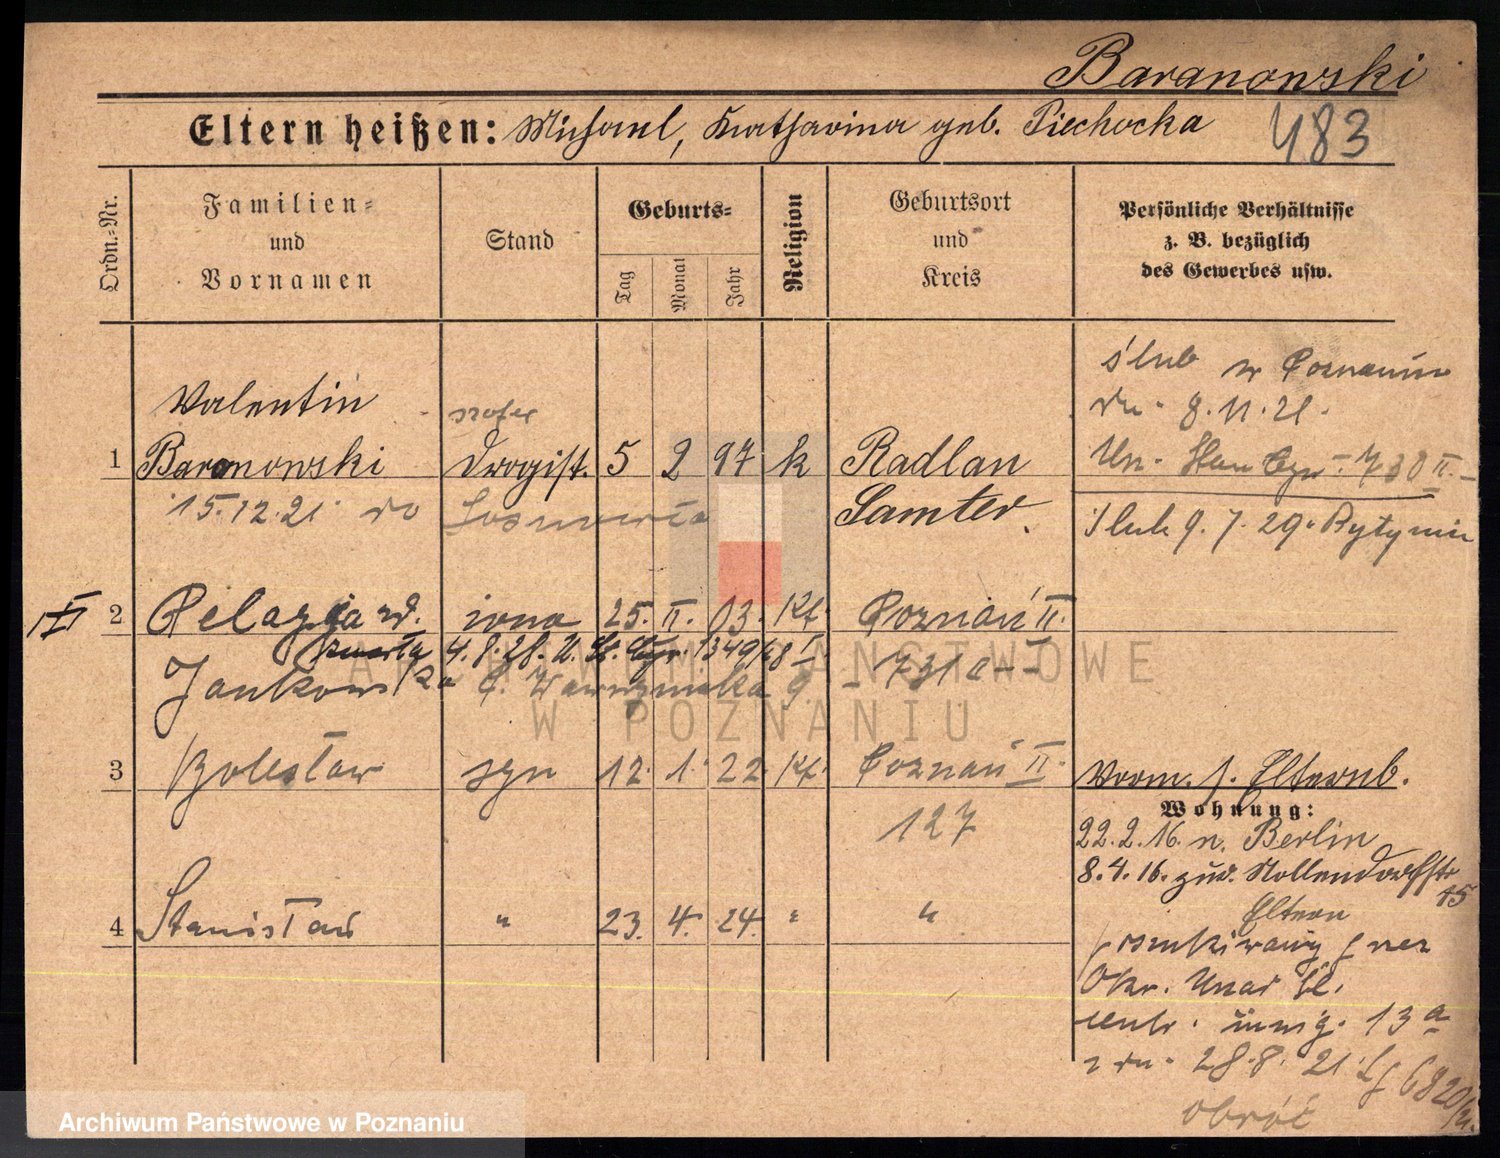 Baranowski
Eltern heißen: Michael, Katharina geb. Piechocka
483
Ordn.=Nr.
Familien=
und
Vornamen
Stand
Geburts=
Tag
Monat
Jahr
Religion
Geburtsort
und
Kreis
Persönliche Verhältnisse
z. B. bezüglich
des Gewerbes usw.
Valentin
szofer
1 Baranowski Drogist. 5 2 97 k Radlan
Samter
15.12.21 do Sosnowca
ślub w Poznaniu
dn. 8.11.21.
Un. 730 II
Ślub 9.7.29.
2 Pelagja zd. żona 25. II. 03. Kt. Poznań II.
4.8.28. U. St. Cyw. 1349/68 I
Jankowska 731a
3 Bolesław syn 12. 1. 22. Kt. Poznań II.
127
Vorm. s. Elternb.
Wohnung:
22.2.16. n. Berlin
8.4.16. zur. Nollendorfstr
15
Eltern
4 Stanisław " 23. 4. 24. " "
poszukiwany przez
Okr. Urząd
13a
z dn. 28.8.21. 6820/21.
obróć
ARCHIWUM PAŃSTWOWE
W POZNANIU
Archiwum Państwowe w Poznaniu